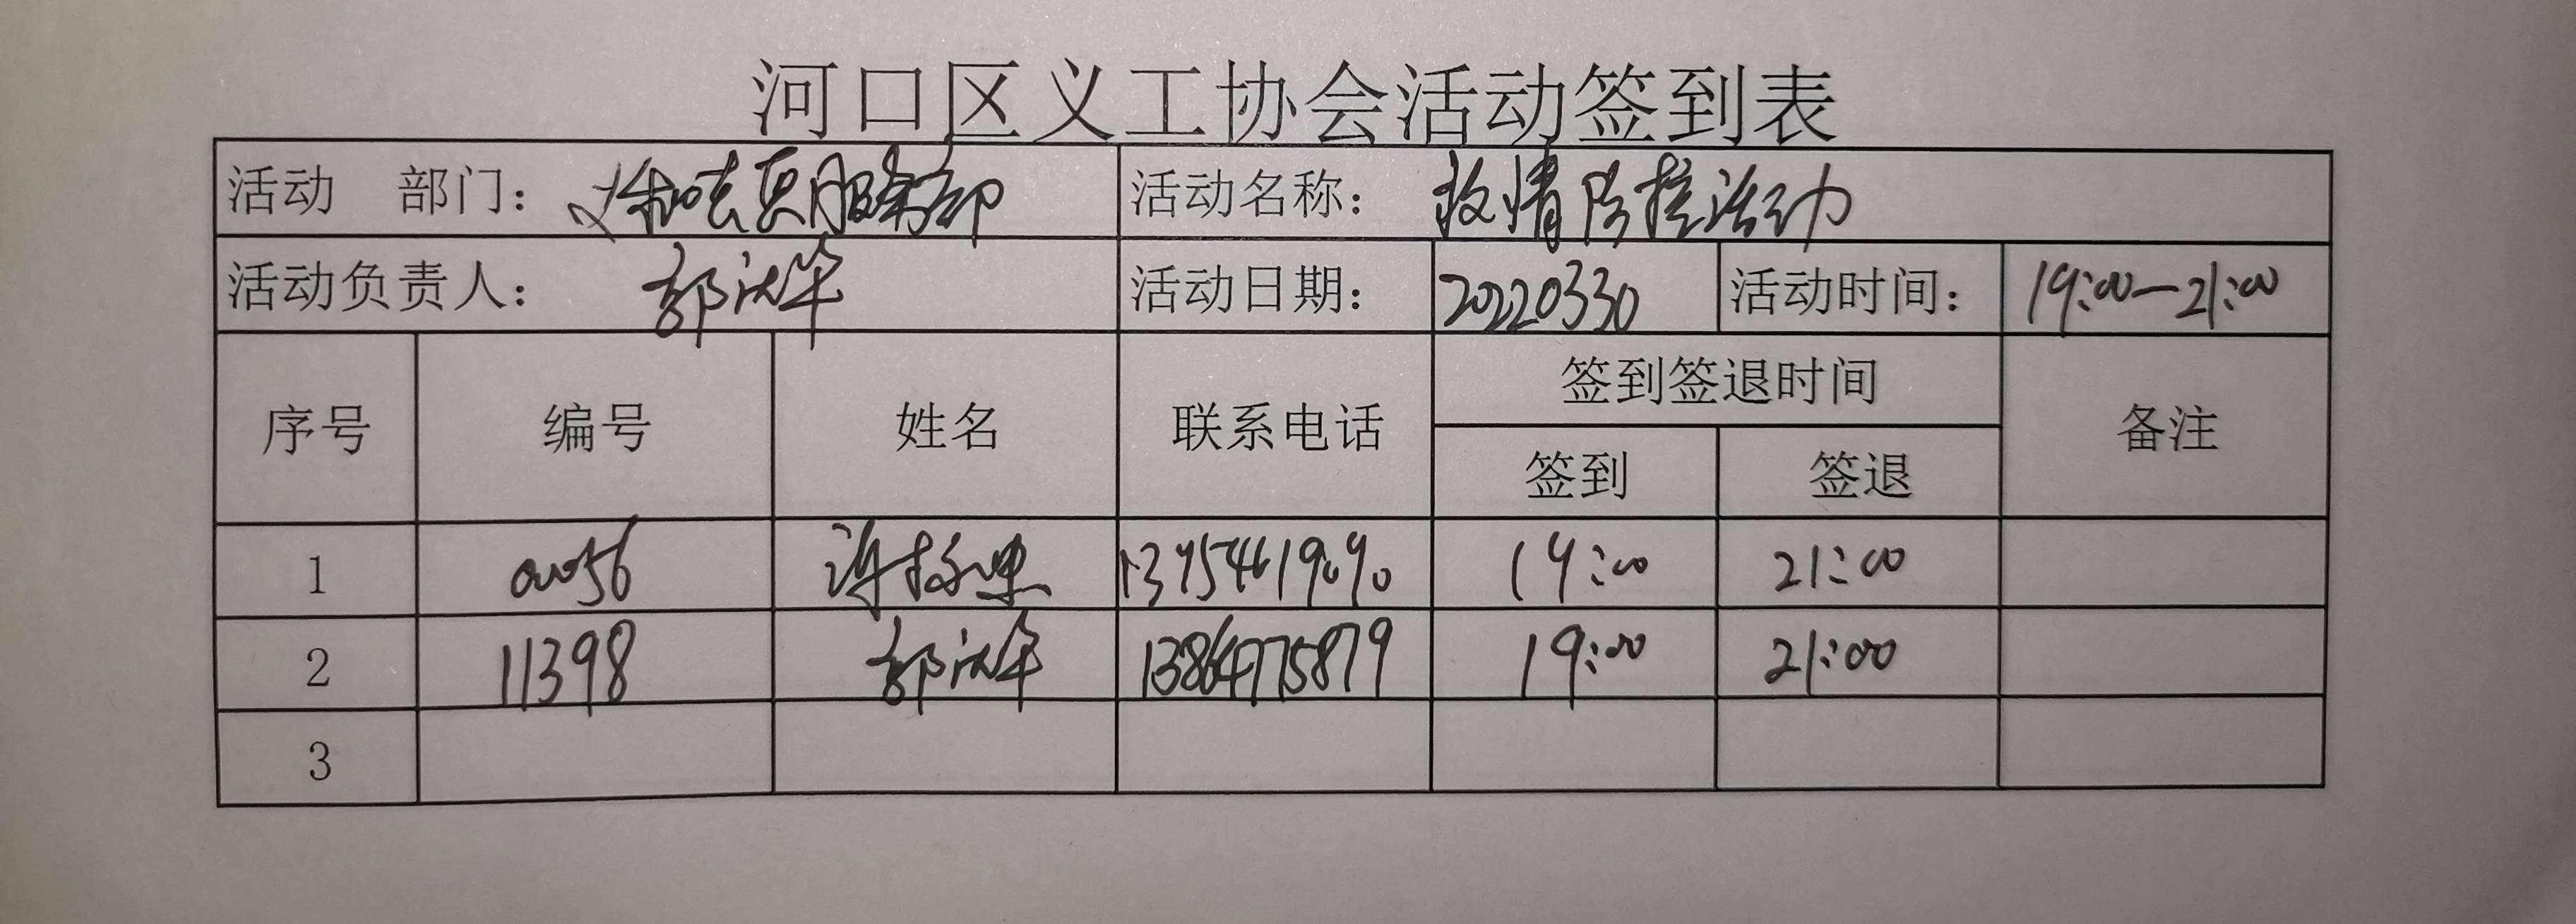 河口区义工协会活动签到表
活动 部门： 服务部 活动名称： 疫情防控活动
活动负责人： 郭 活动日期： 20220330 活动时间： 19:00—21:00
序号 编号 姓名 联系电话 签到签退时间 备注
签到 签退
1 00056 许 19:00 21:00
2 11398 郭 13864775879 19:00 21:00
3